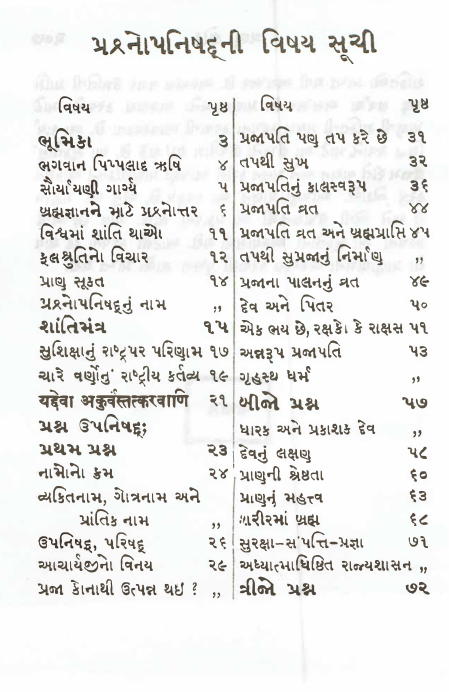 પ્રશ્નોપનિષદ્ની વિષય સૂચી
વિષય પૃષ્ઠ
ભૂમિકા ૩
ભગવાન પિપ્પલાદ ઋષિ ૪
સૌર્યાયણી ગાર્ગ્ય ૫
બ્રહ્મજ્ઞાનને માટે પ્રશ્નોત્તર ૬
વિશ્વમાં શાંતિ થાઓ ૧૧
ફલશ્રુતિનો વિચાર ૧૨
પ્રાણ સૂક્ત ૧૪
પ્રશ્નોપનિષદ્નું નામ ,,
શાંતિમંત્ર ૧૫
સુશિક્ષાનું રાષ્ટ્રપર પરિણામ ૧૭
ચારે વર્ણોનું રાષ્ટ્રીય કર્તવ્ય ૧૯
यद्देवा अकुर्वंस्तत्करवाणि ૨૧
પ્રશ્ન ઉપનિષદ્;
પ્રથમ પ્રશ્ન ૨૩
નામોનો ક્રમ ૨૪
વ્યક્તિનામ, ગોત્રનામ અને
પ્રાંતિક નામ ,,
ઉપનિષદ્, પરિષદ્ ૨૬
આચાર્યજીનો વિનય ૨૯
પ્રજા કોનાથી ઉત્પન્ન થઇ ? ,,
વિષય પૃષ્ઠ
પ્રજાપતિ પણ તપ કરે છે ૩૧
તપથી સુખ ૩૨
પ્રજાપતિનું કાલસ્વરૂપ ૩૬
પ્રજાપતિ વ્રત ૪૪
પ્રજાપતિ વ્રત અને બ્રહ્મપ્રાપ્તિ ૪૫
તપથી સુપ્રજાનું નિર્માણ ,,
પ્રજાના પાલનનું વ્રત ૪૯
દેવ અને પિતર ૫૦
એક ભય છે, રક્ષકો કે રાક્ષસ ૫૧
અન્નરૂપ પ્રજાપતિ ૫૩
ગૃહસ્થ ધર્મ ,,
બીજો પ્રશ્ન ૫૭
ધારક અને પ્રકાશક દેવ ,,
દેવનું લક્ષણ ૫૮
પ્રાણની શ્રેષ્ઠતા ૬૦
પ્રાણનું મહત્ત્વ ૬૩
શરીરમાં બ્રહ્મ ૬૮
સુરક્ષા–સંપત્તિ–પ્રજ્ઞા ૭૧
અધ્યાત્માધિષ્ઠિત રાજ્યશાસન ,,
ત્રીજો પ્રશ્ન ૭૨